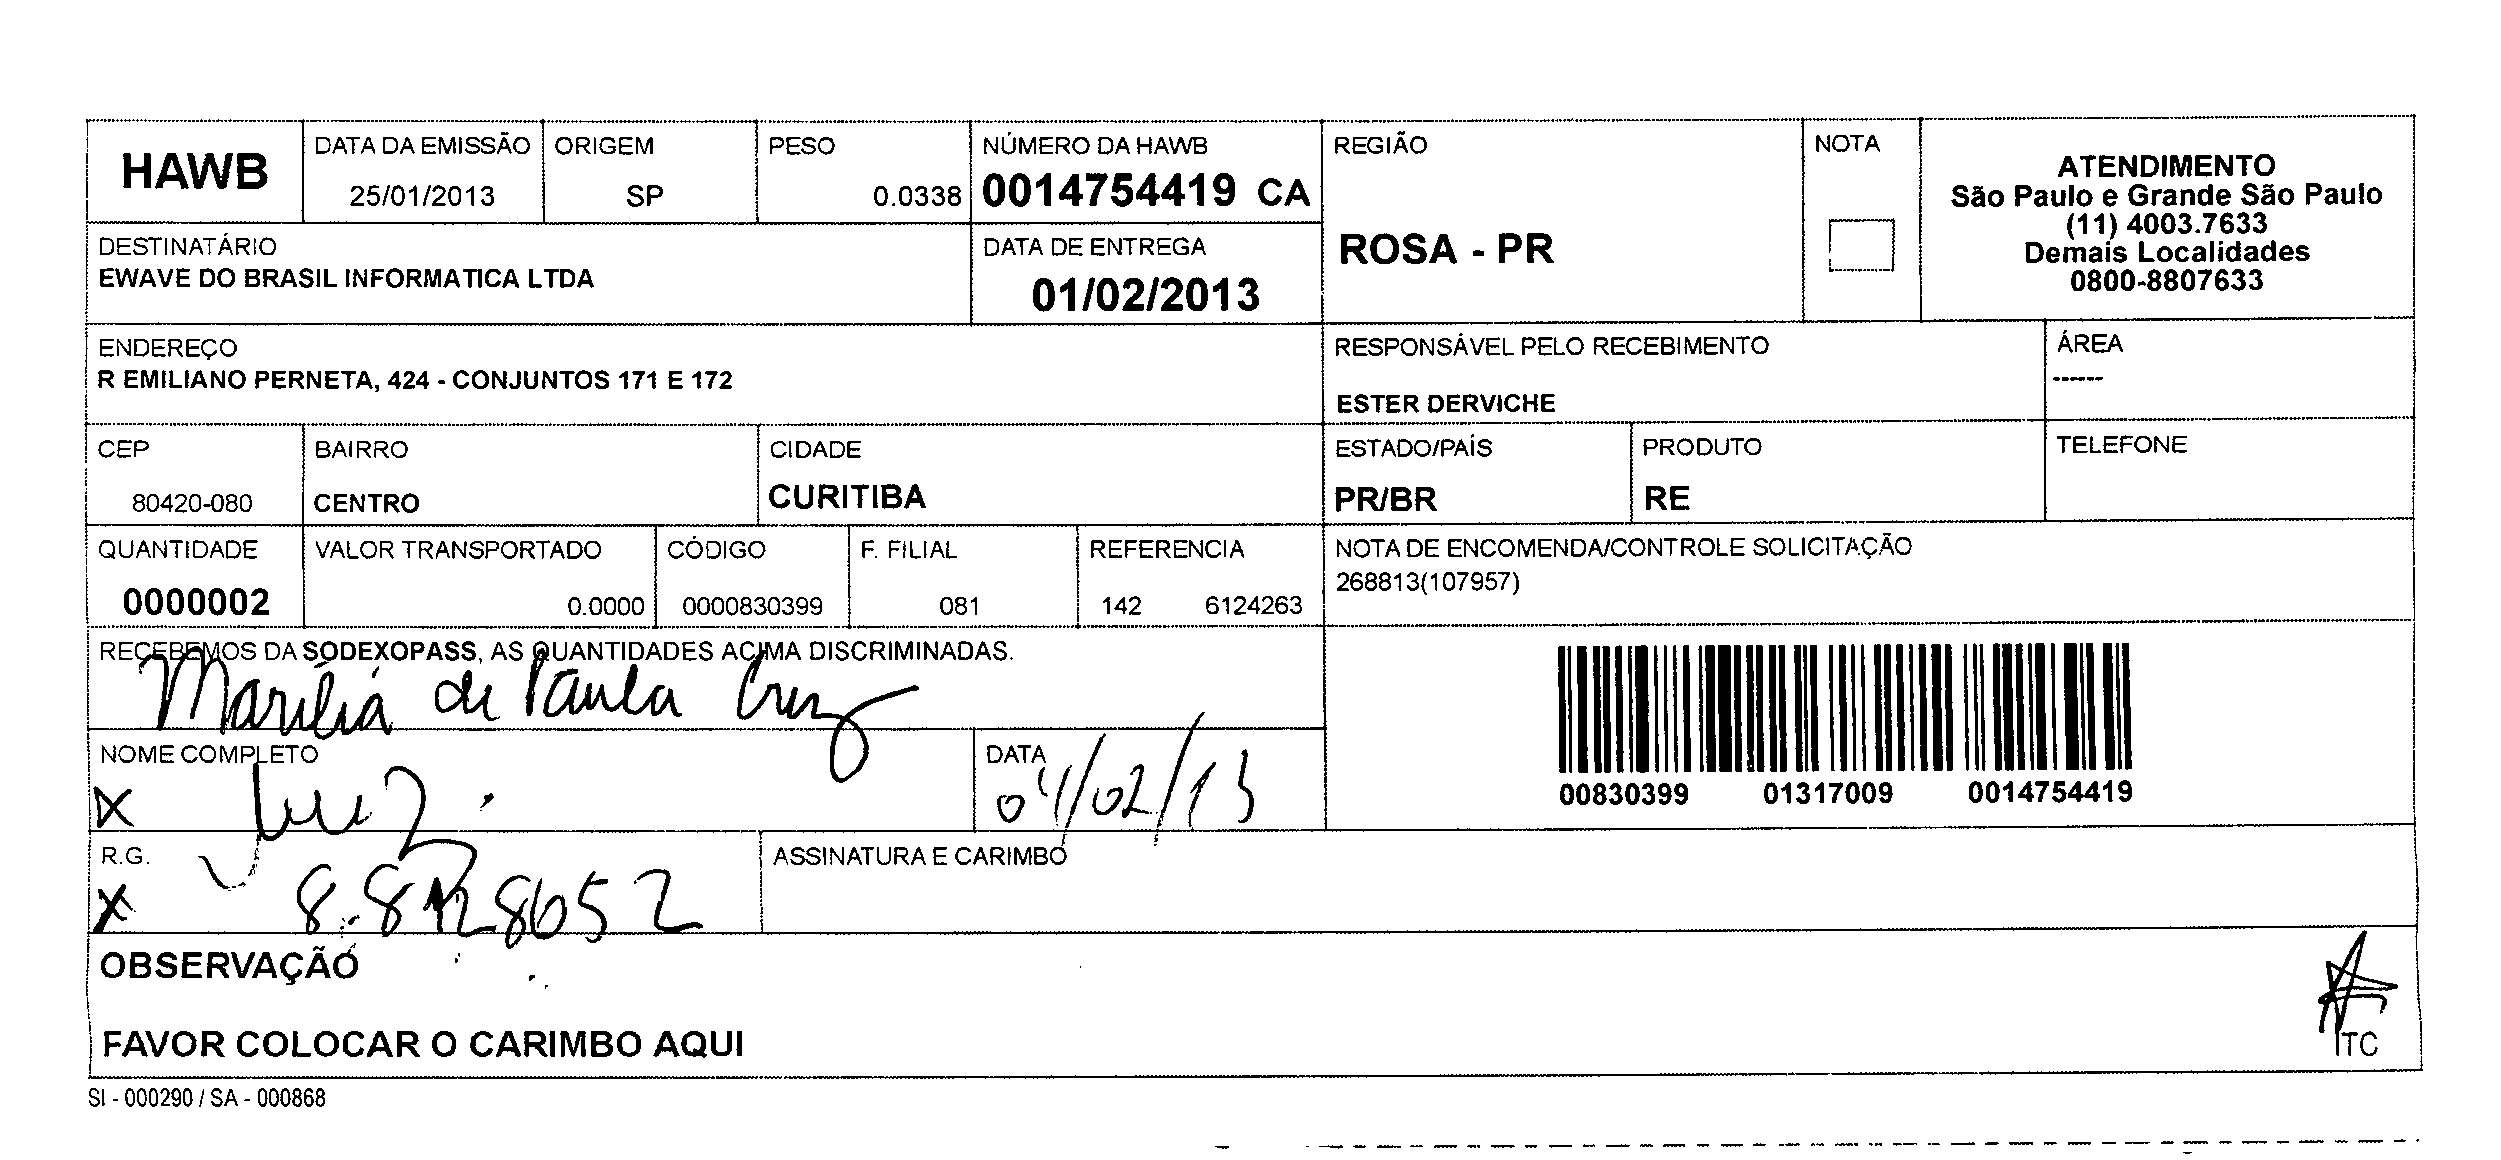 HAWB
DATA DA EMISSÃO
25/01/2013
ORIGEM
SP
PESO
0.0338
NÚMERO DA HAWB
0014754419 CA
REGIÃO
ROSA - PR
NOTA
ATENDIMENTO
São Paulo e Grande São Paulo
(11) 4003.7633
Demais Localidades
0800-8807633
DESTINATÁRIO
EWAVE DO BRASIL INFORMATICA LTDA
DATA DE ENTREGA
01/02/2013
ENDEREÇO
R EMILIANO PERNETA, 424 - CONJUNTOS 171 E 172
RESPONSÁVEL PELO RECEBIMENTO
ESTER DERVICHE
ÁREA
------
CEP
80420-080
BAIRRO
CENTRO
CIDADE
CURITIBA
ESTADO/PAÍS
PR/BR
PRODUTO
RE
TELEFONE
QUANTIDADE
0000002
VALOR TRANSPORTADO
0.0000
CÓDIGO
0000830399
F. FILIAL
081
REFERENCIA
142 6124263
NOTA DE ENCOMENDA/CONTROLE SOLICITAÇÃO
268813(107957)
RECEBEMOS DA SODEXOPASS, AS QUANTIDADES ACIMA DISCRIMINADAS.
Marilia de Paula Cruz
NOME COMPLETO
X
DATA
04/02/13
00830399 01317009 0014754419
R.G.
X
ASSINATURA E CARIMBO
OBSERVAÇÃO
FAVOR COLOCAR O CARIMBO AQUI
ITC
SI - 000290 / SA - 000868